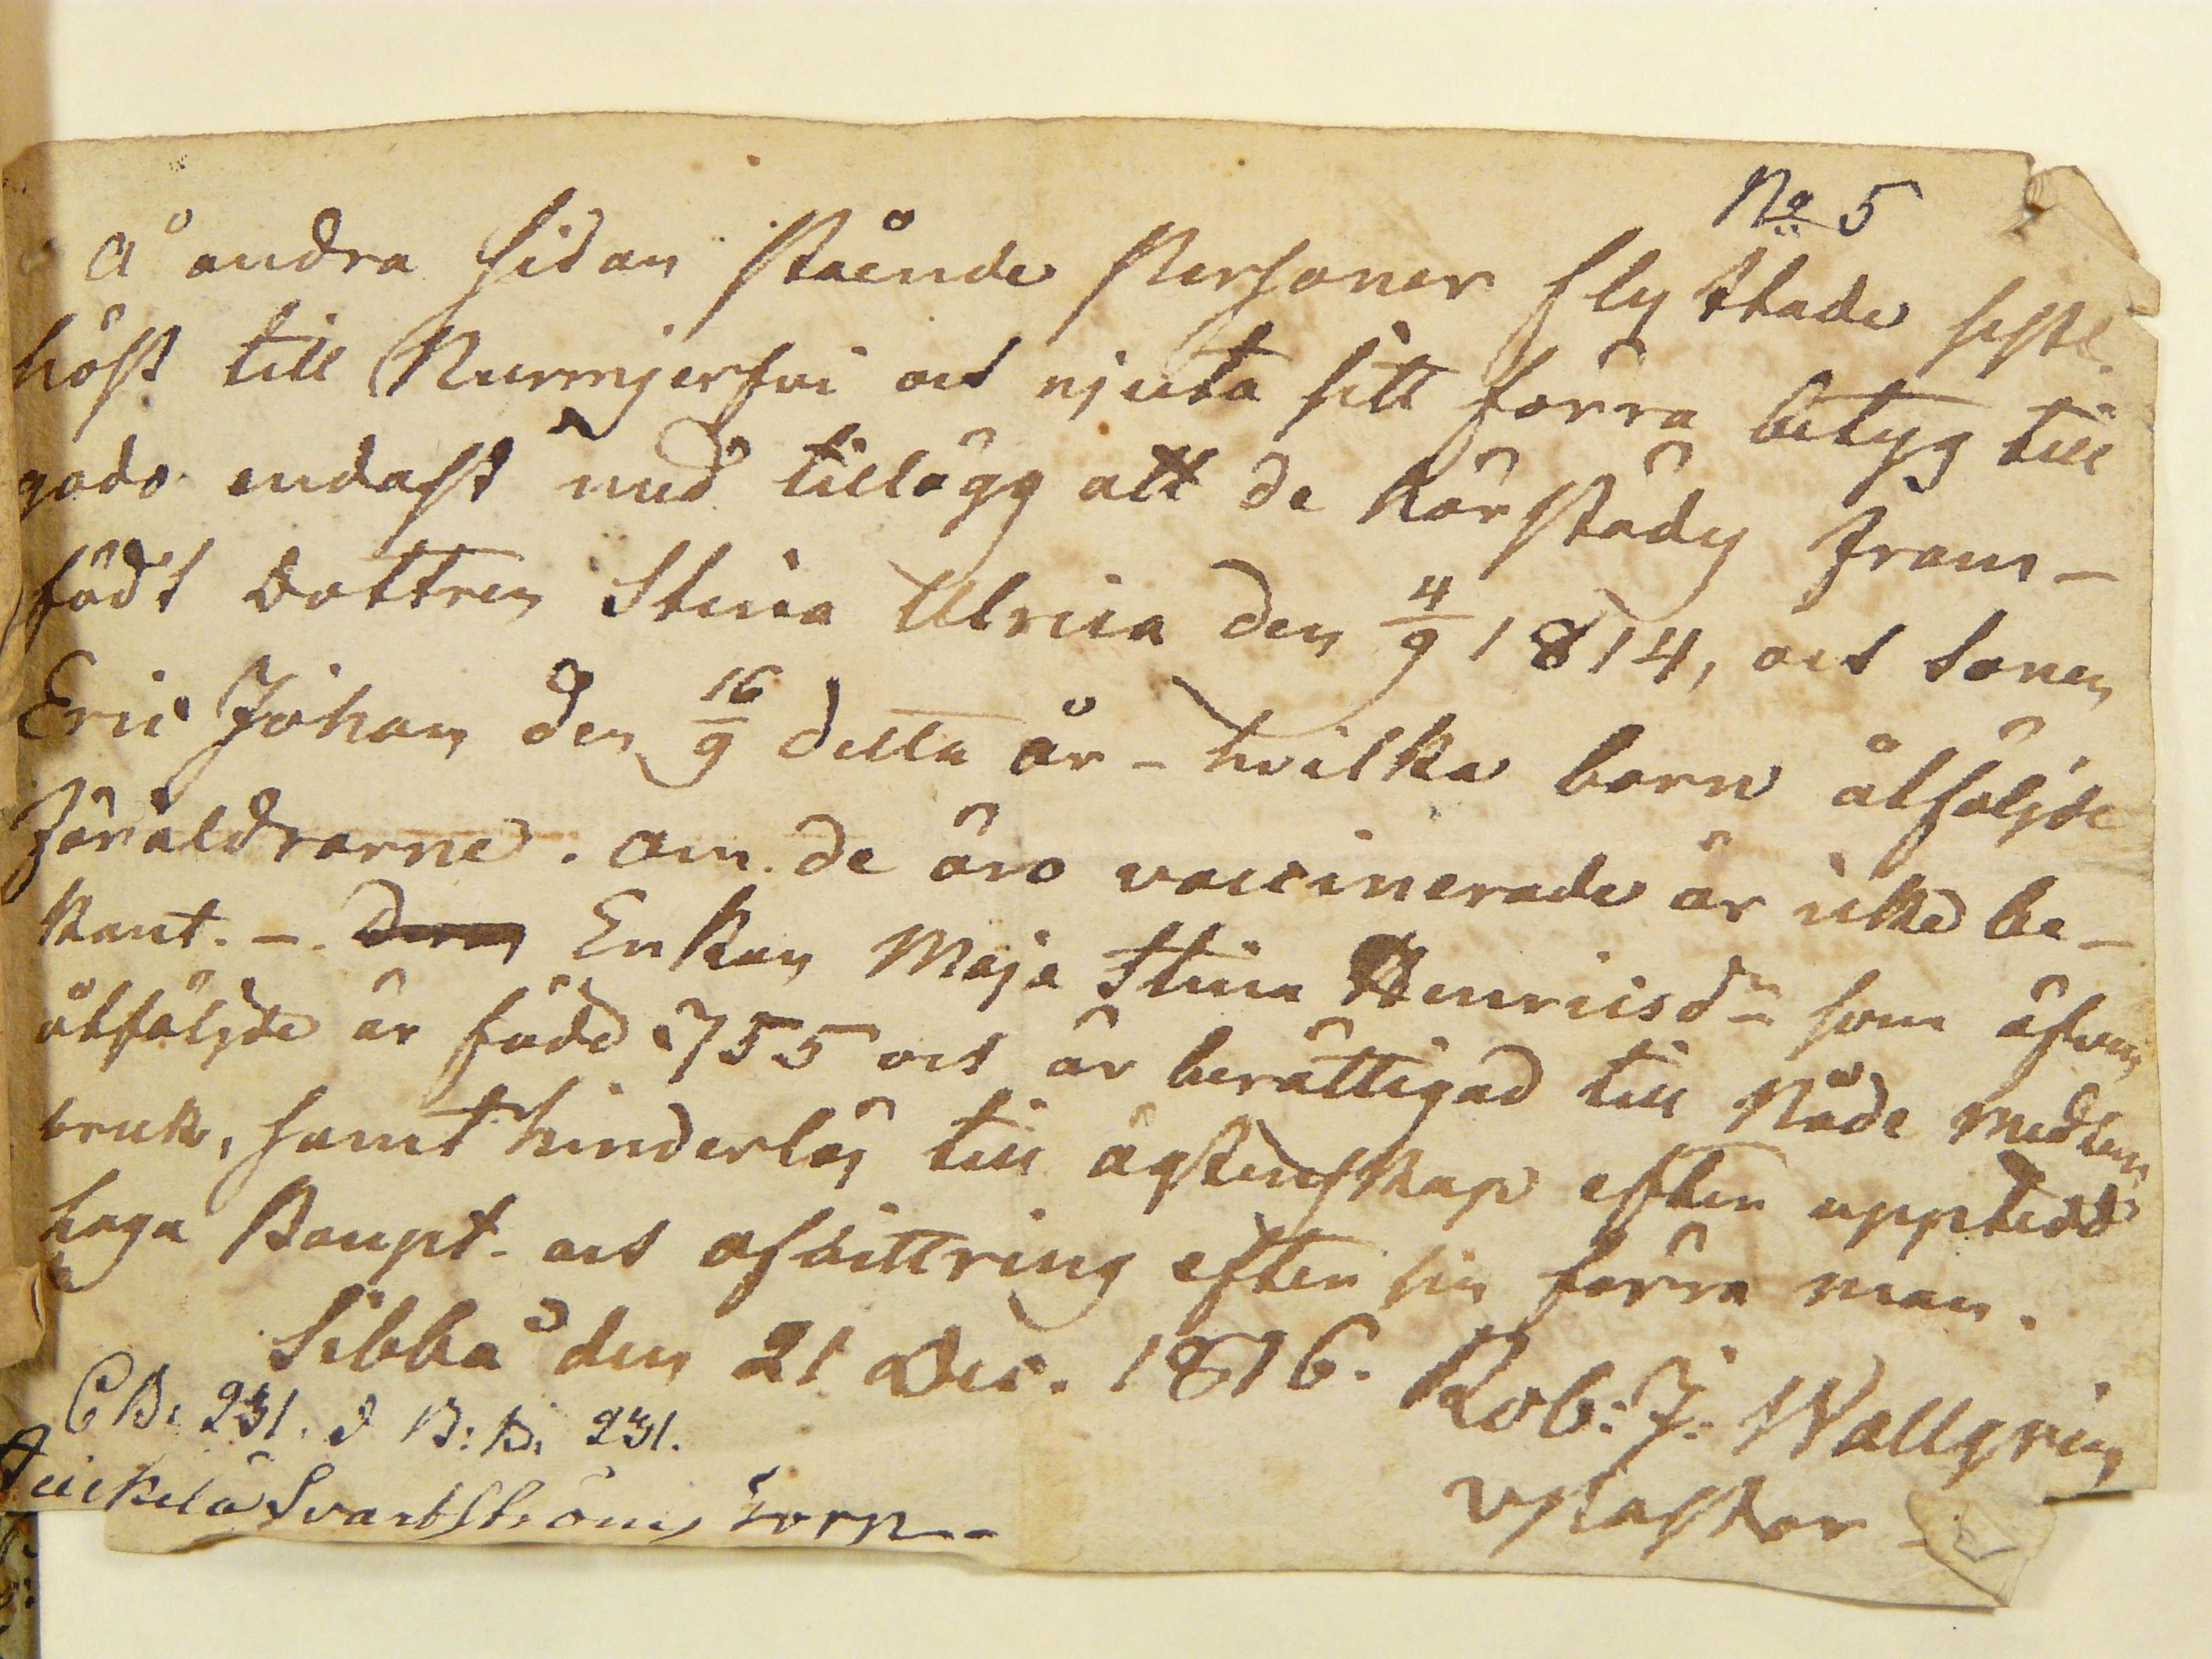 No 5
Å andra sidan stående Personer flyttade sistl.
höst till Nurmjerfvi och njuta sitt förra betyg till
godo endast med tillägg att de härstädes fram-
födt dottren Stina Ulrica den 4/9 1814, och sonen
Eric Johan den 16/9 detta år - hvilka barn åtföljde
Föräldrarne. Om de äro vaccinerade är icke be-
kant. - Enkan Maja Stina Henricsdr som äfven
åtföljde är född 755 och är berättigad till Nåde medlens
bruk, samt hinderlös till ägtenskap efter uppteedd
laga Boupt. och afvittring efter sin förra man.
Sibbå den 21 Dec. 1816. Rob: J: Wallgren
v Pastor
C B: 231. d B: B: 231.
Svartströms torp